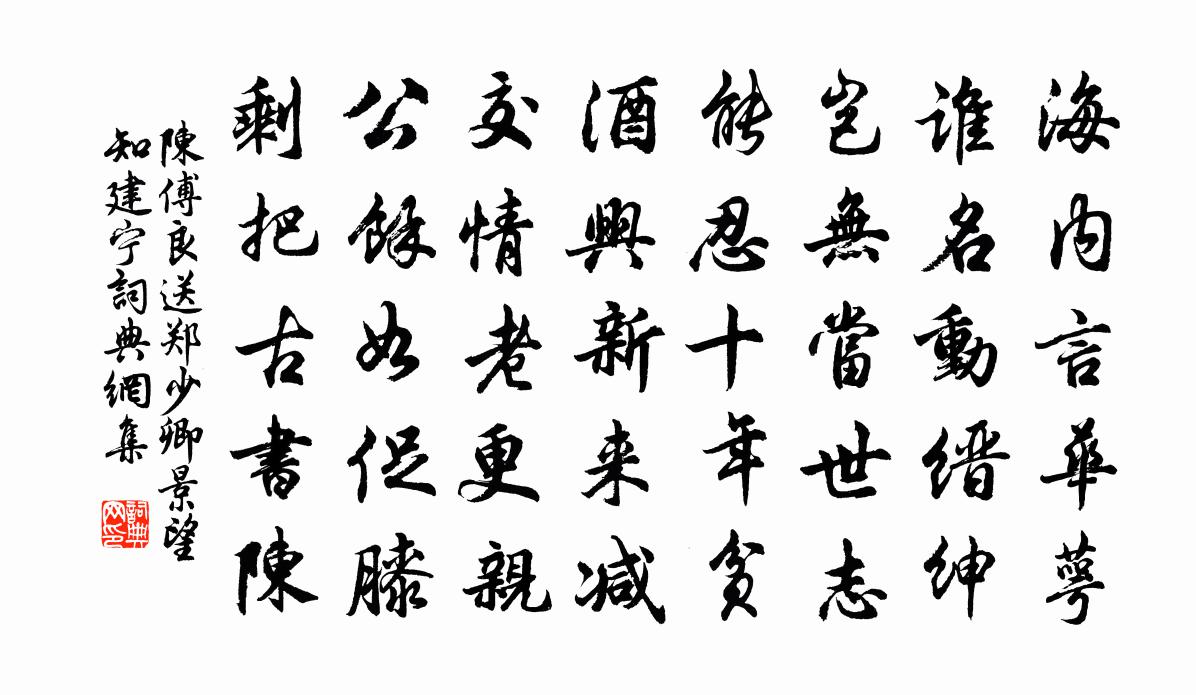 海内言華萼
誰名動缙紳
豈無當世志
能忍十年貧
酒興新来减
交情老更親
公餘如促膝
剩把古書陳
陳傅良送郑少卿景望
知建宁詞典網集
詞典网印